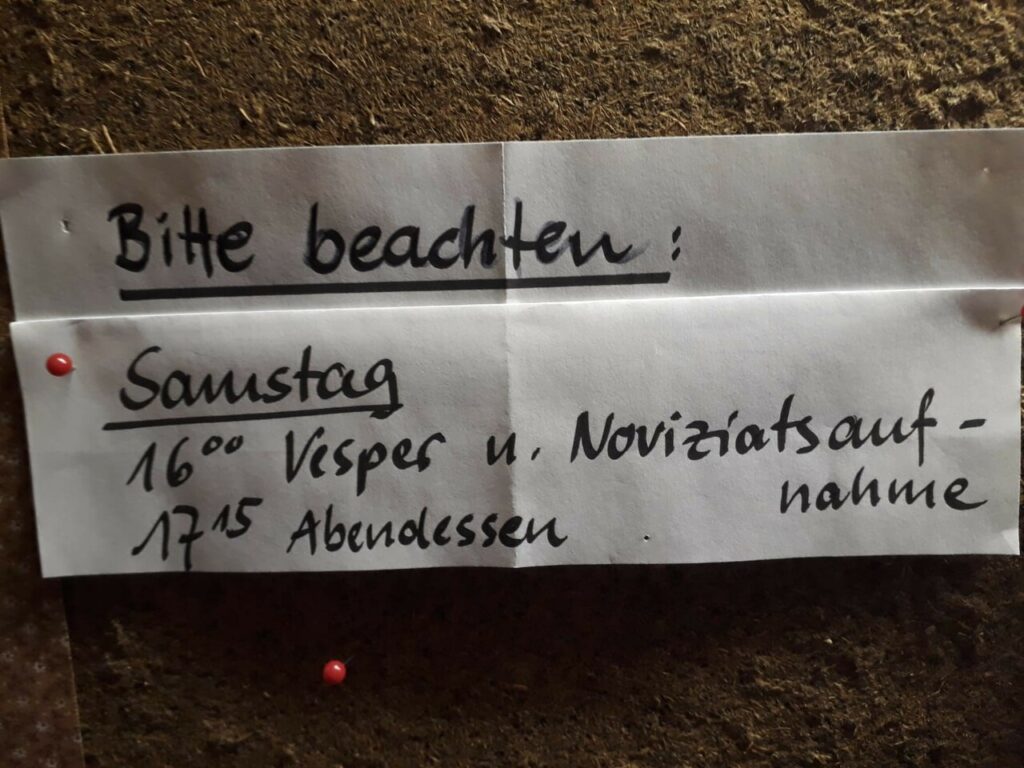 Bitte beachten:
Samstag
16⁰⁰ Vesper u. Noviziatsauf-
nahme
17¹⁵ Abendessen